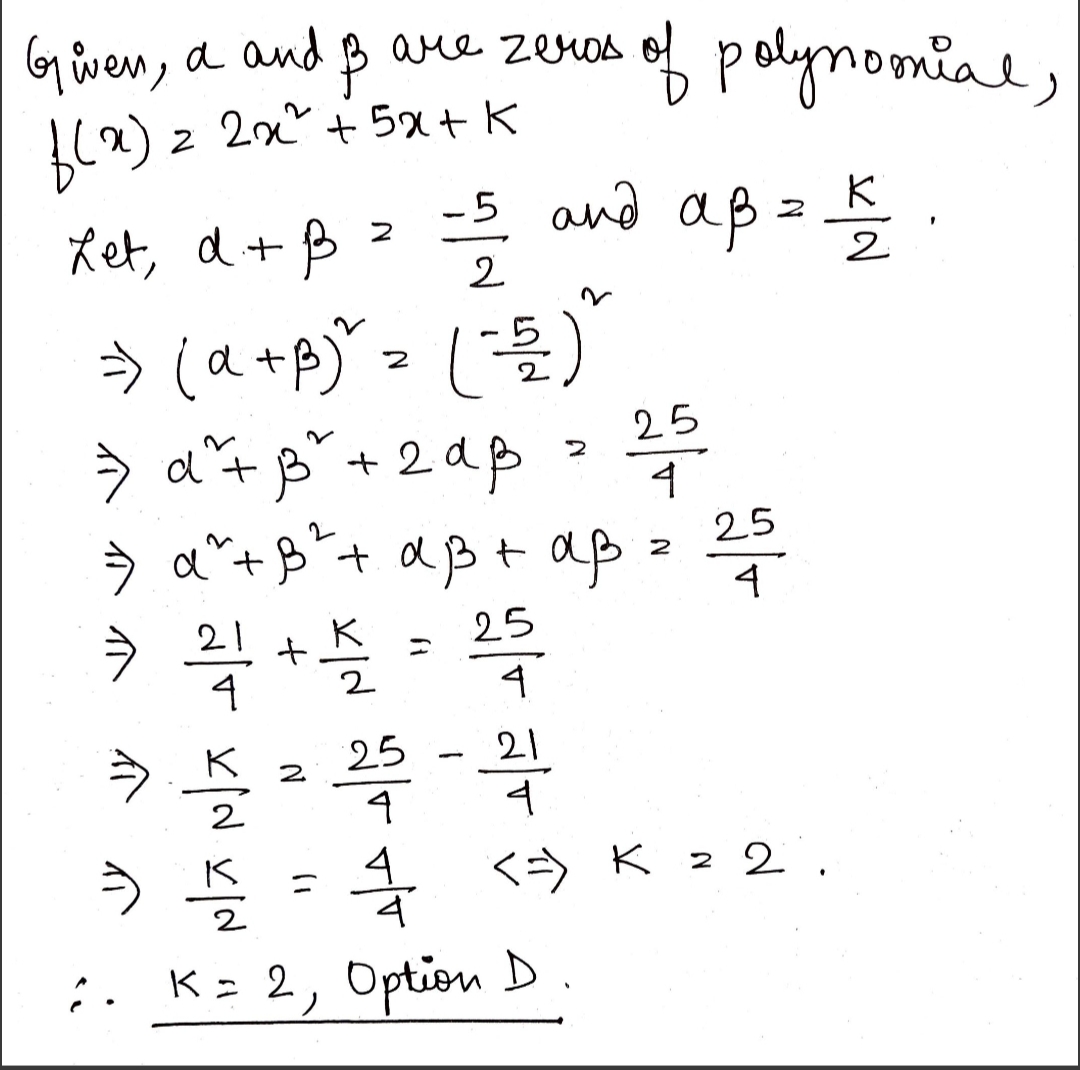 Given, α and β are zeros of polynomial,
f(x) = 2x² + 5x + K
Let, α + β = -5/2 and αβ = K/2 .
⇒ (α + β)² = (-5/2)²
⇒ α² + β² + 2αβ = 25/4
⇒ α² + β² + αβ + αβ = 25/4
⇒ 21/4 + K/2 = 25/4
⇒ K/2 = 25/4 - 21/4
⇒ K/2 = 4/4 <=> K = 2 .
∴ K = 2, Option D .